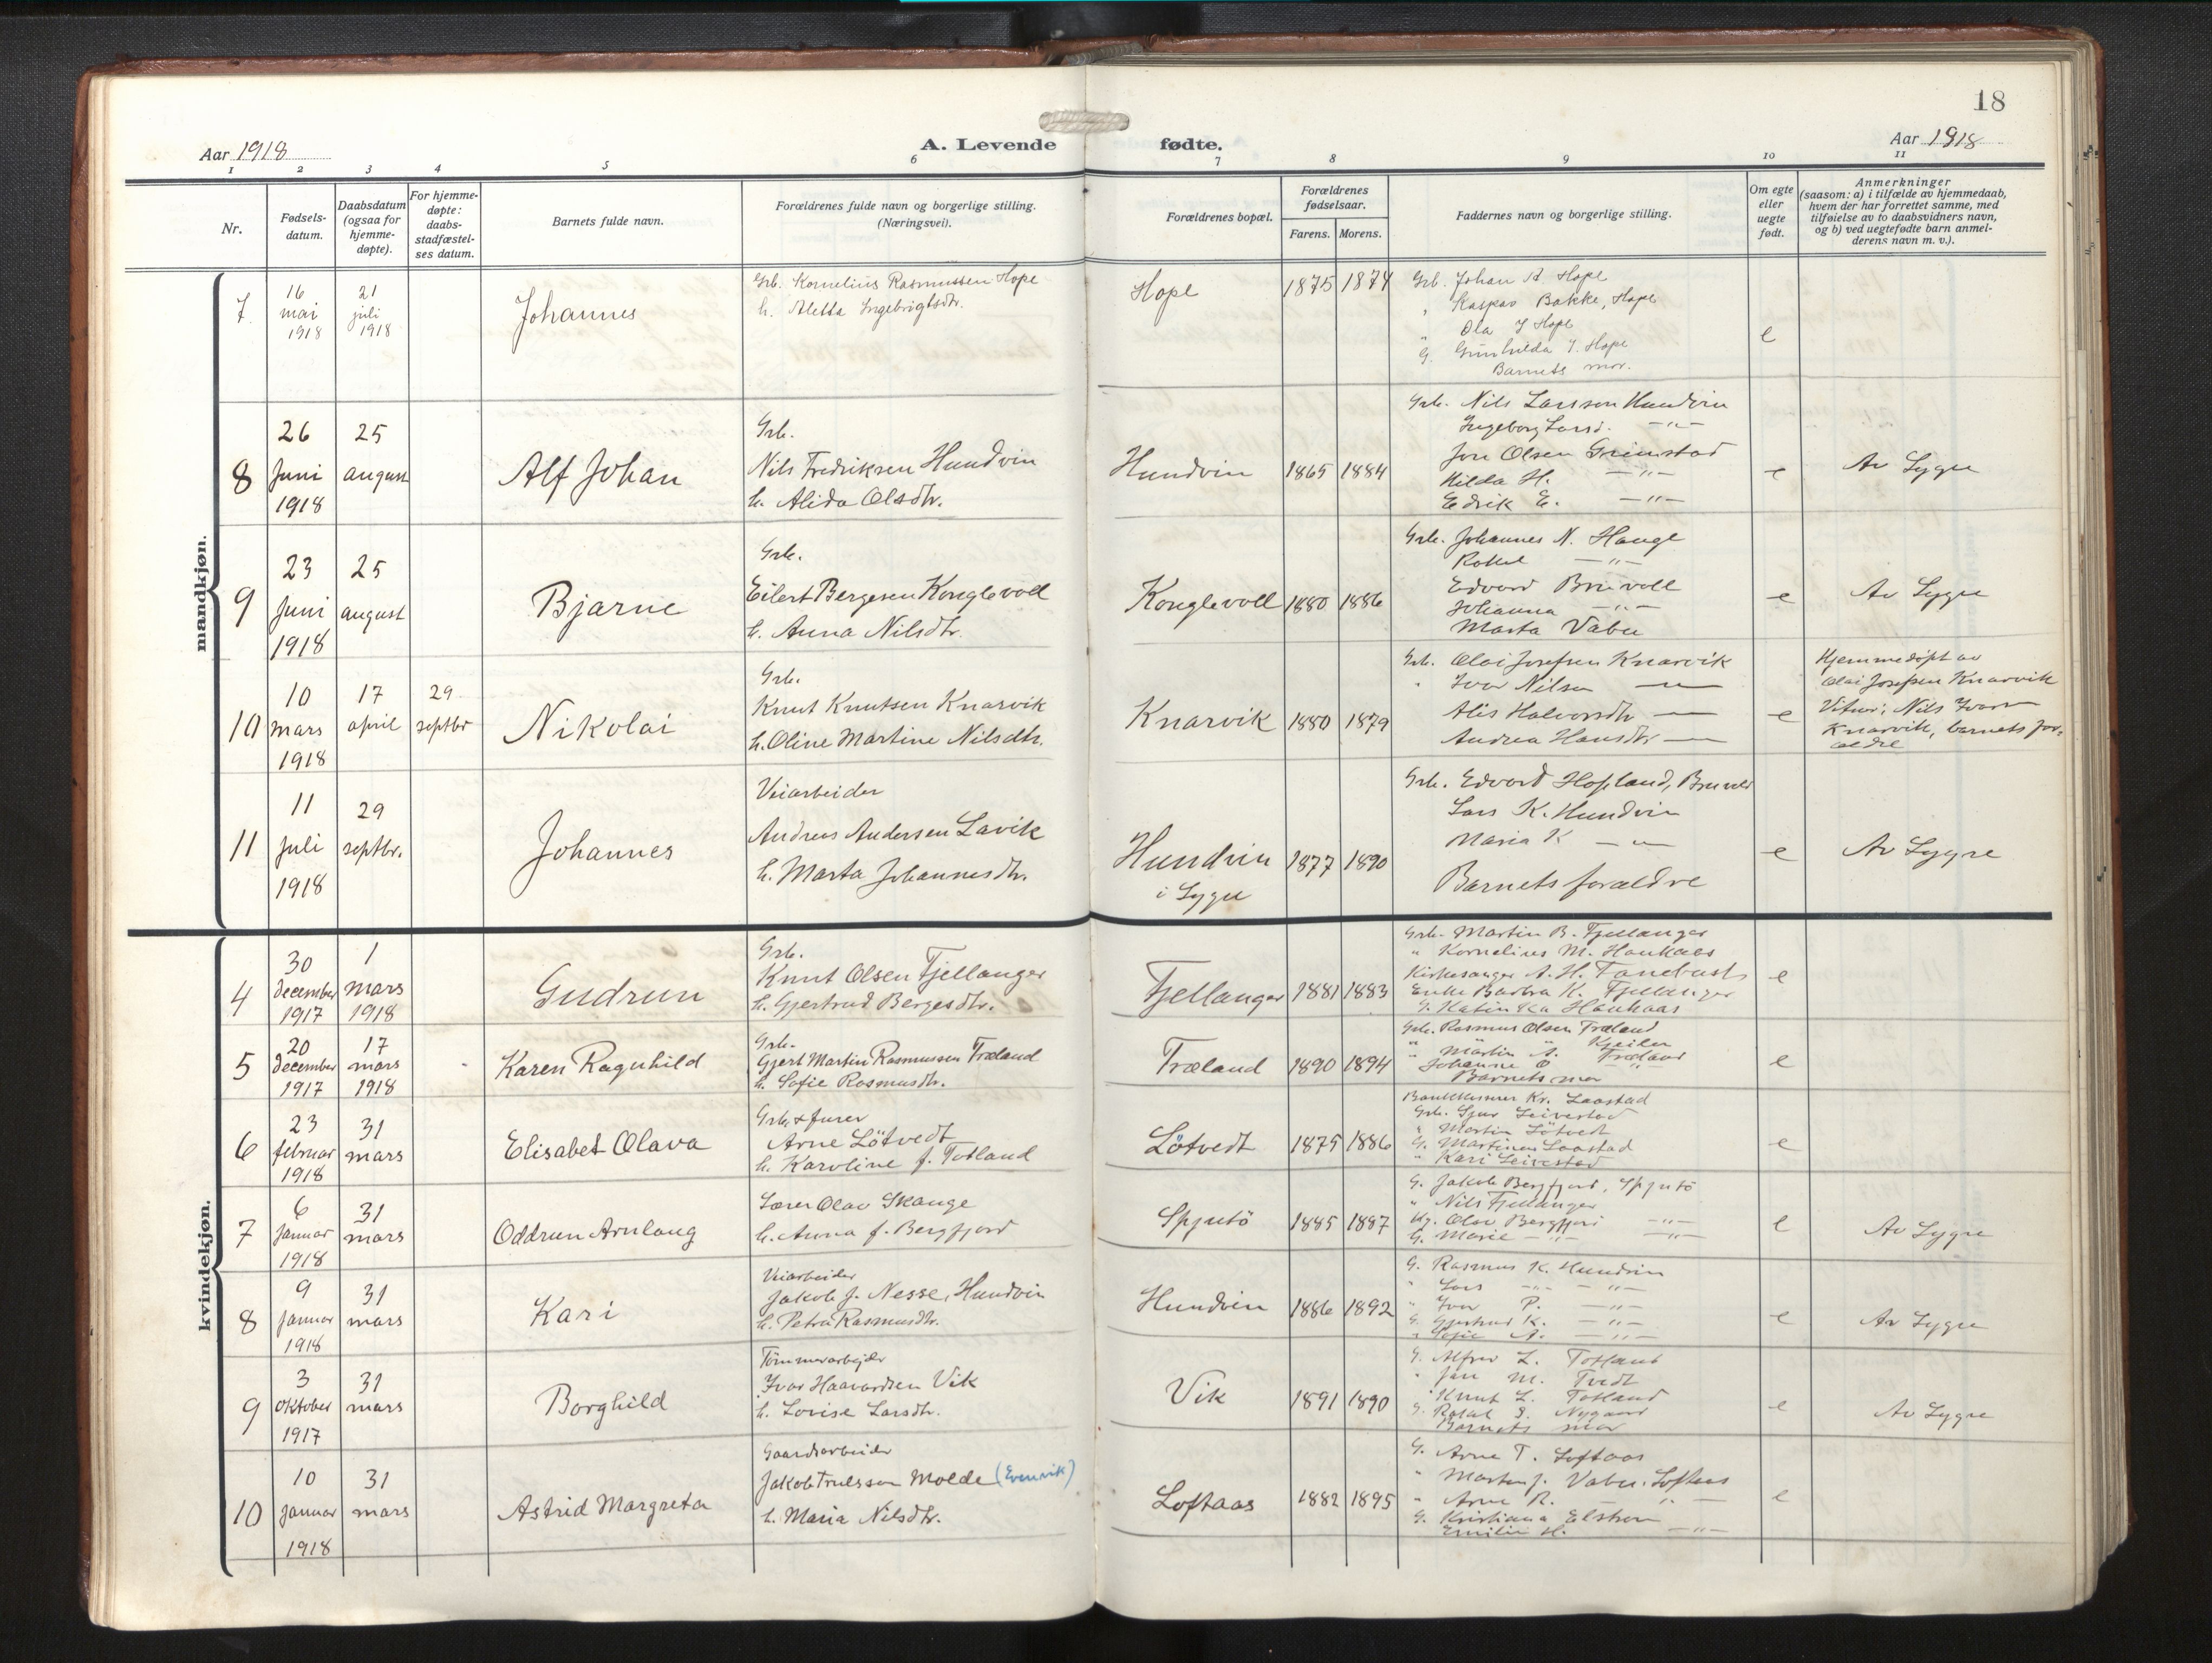 18
Aar 1918
A. Levende fødte.
Aar 1918
1 2 3 4 5 6 7 8 9 10 11
Nr.
Fødsels-
datum.
Daabsdatum
(ogsaa for
hjemme-
døpte).
For hjemme-
døpte:
daabs-
stadfæstel-
ses datum.
Barnets fulde navn.
Forældrenes fulde navn og borgerlige stilling.
(Næringsvei).
Forældrenes bopæl.
Forældrenes
fødselsaar.
Farens. Morens.
Faddernes navn og borgerlige stilling.
Om egte
eller
uegte
født.
Anmerkninger
(saasom: a) i tilfælde av hjemmedaab,
hvem der har forrettet samme, med
tilføielse av to daabsvidners navn,
og b) ved uegtefødte barn anmel-
derens navn m. v.).
mandkjøn.
7
16
mai
1918
21
juli
1918
Johannes
Grb. Kornelius Rasmussen Hope
h. Aletta Ingebrigtsdtr.
Hope
1875 1874
Grb. Johan A. Hope
Kaspar Bakke, Hope
Ola J Hope
G. Gunhilda J. Hope
Barnets mor.
e
8
26
Juni
1918
25
august
Alf Johan
Grb.
Nils Fredriksen Hundvin
h. Alida Olsdtr.
Hundvin
1865 1884
Grb. Nils Larsson Hundvin
Ingeborg Larsd. —"—
Jon Olsen Grimstad
Hilda H. —"—
Edrik E. —"—
e
Av Lygre
9
23
Juni
1918
25
august
Bjarne
Grb.
Eilert Bergesen Konglevoll
h. Anna Nilsdtr.
Konglevoll
1880 1886
Grb. Johannes N. Hauge
Rakel —"—
Edvard Bruvoll
Johanna —"—
Marta Vabu
e
Av Lygre
10
10
mars
1918
17
april
29
septbr
Nikolai
Grb.
Knut Knutsen Knarvik
h. Oline Martine Nilsdtr.
Knarvik
1880 1879
Grb. Olai Josefsen Knarvik
" Ivar Nilsen —"—
Alis Halvorsdtr —"—
Andrea Hansdtr —"—
e
Hjemmedøpt av
Olai Josefsen Knarvik
Vitner: Nils Ivarsen
Knarvik, barnets for-
ældre
11
11
Juli
1918
29
septbr.
Johannes
Veiarbeider
Andreas Andersen Lavik
h. Marta Johannesdtr.
Hundvin
i Lygre
1877 1890
Grb. Edvard Hopland, Bruvoll
Lars K. Hundvin
Maria K —"—
Barnets forældre
e
Av Lygre
kvindekjøn.
4
30
december
1917
1
mars
1918
Gudrun
Grb.
Knut Olsen Fjellanger
h. Gjertrud Bergesdtr.
Fjellanger
1881 1883
Grb. Martin B. Fjellanger
" Kornelius M. Haukaas
Kirkesanger A. H. Tanebust
Enke Barbra K. Fjellanger
G. Katinka Haukaas
e
5
20
december
1917
17
mars
1918
Karen Ragnhild
Grb.
Gjert Martin Rasmussen Træland
h. Sofie Rasmusdtr.
Træland
1890 1894
Grb. Rasmus Olsen Træland
" " " Kjeilen
" Martin A. Træland
Johanne O —"—
Barnets mor
e
6
23
februar
1918
31
mars
Elisabet Olava
Grb. & furer
Arne Lötvedt
h. Karoline f. Totland
Lötvedt
1875 1886
Bankkasserer Kr. Laastad
Grb. Sjur Leivestad
" Martin Lötvedt
G. Martines Laastad
" Kari Leivestad
e
7
6
Januar
1918
31
mars
Oddrun Arnlaug
Lærer Olav Skauge
h. Anna f. Bergfjord
Spjutö
1885 1887
G. Jakob Bergfjord, Spjutö
" Nils Fjellanger
Ug. Olav Bergfjord —"—
G. Marie —"— —"—
e
Av Lygre
8
9
Januar
1918
31
mars
Kari
Veiarbeider
Jakob J. Nesse, Hundvin
h. Petra Rasmusdtr.
Hundvin
1886 1892
G. Rasmus K. Hundvin
" Lars —"— —"—
" Ivar P. —"—
G. Gjertrud K. —"—
" Sofie A. —"—
e
Av Lygre
9
3
Oktober
1917
31
mars
Borghild
Tömmerarbeider
Ivar Haavardsen Vik
h. Lovise Larsdtr.
Vik
1891 1890
G. Alfred L. Totland
" Jan M. Tvedt
" Knut L. Totland
G. Rakel G. Nygaard
Barnets mor
e
Av Lygre
10
10
Januar
1918
31
mars
Astrid Margreta
Gaardsarbeider
Jakob Trulssen Molde (Evenvik)
h. Maria Nilsdtr.
Loftaas
1882 1895
G. Arne T. Loftaas
" Marten J. Vabu, Loftaas
" Arne R. —"—
G. Kristiana Elstrøm
Emilie H. —"—
e